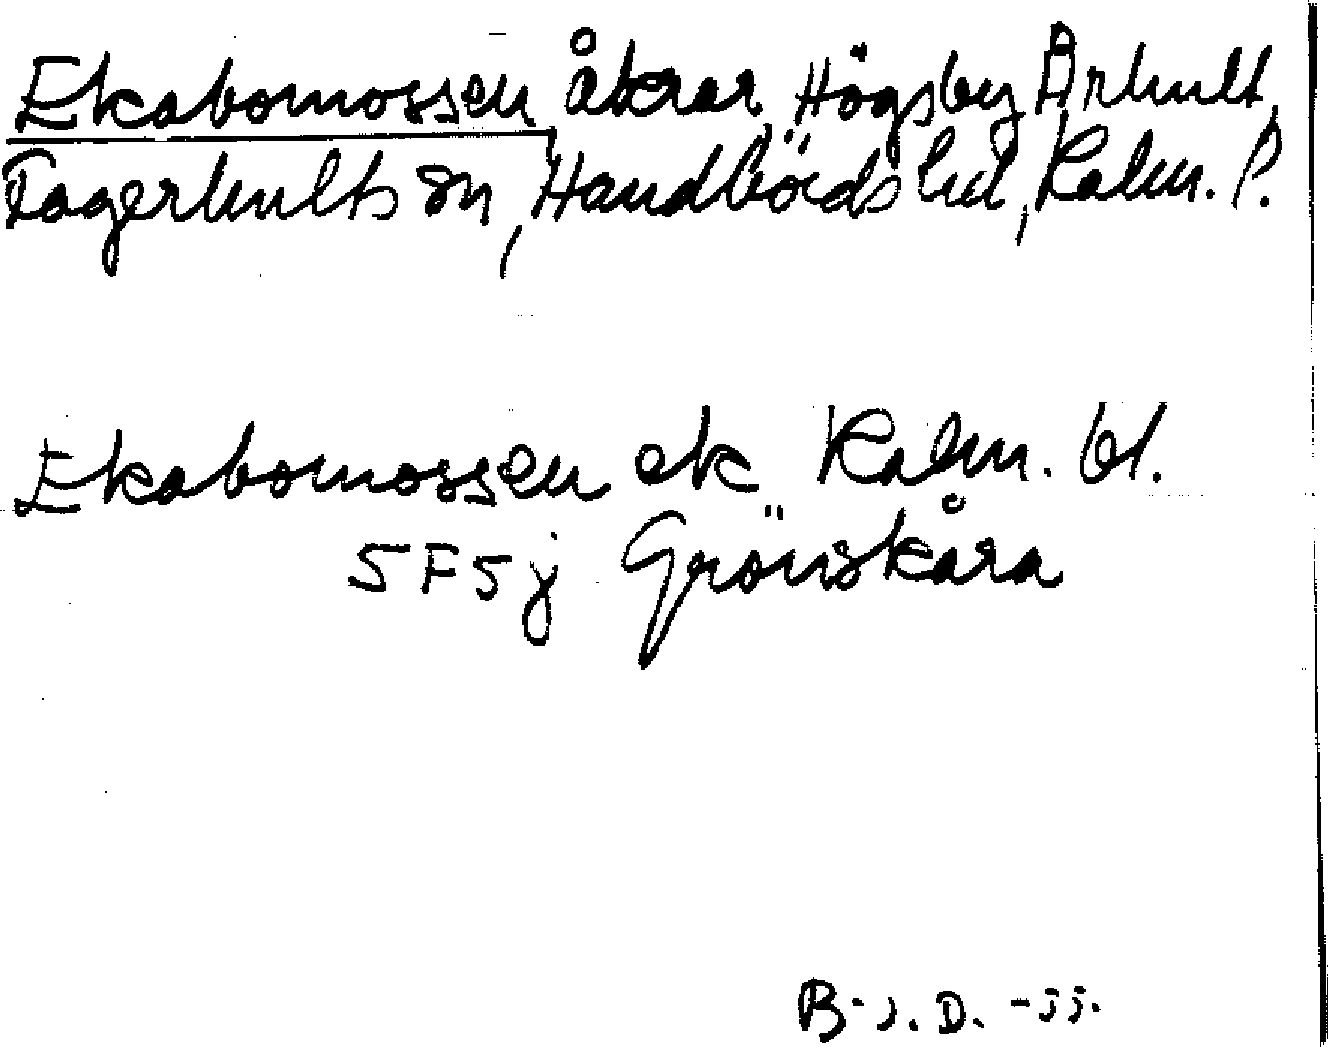 Ekabomossen, åkrar, Högsby, Århult,
Fagerhults sn, Handbörds hd, Kalm. l.
Ekabomossen ek Kalm. bl.
5F5j Grönskåra
B-j. D. -55.